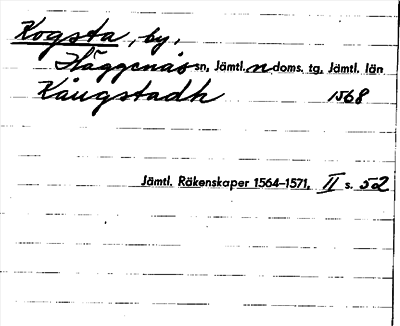 Kogsta, by,
Häggenås sn, Jämtl. n doms. tg, Jämtl. län
Kaugstadh 1568
Jämtl. Räkenskaper 1564–1571, II s. 52